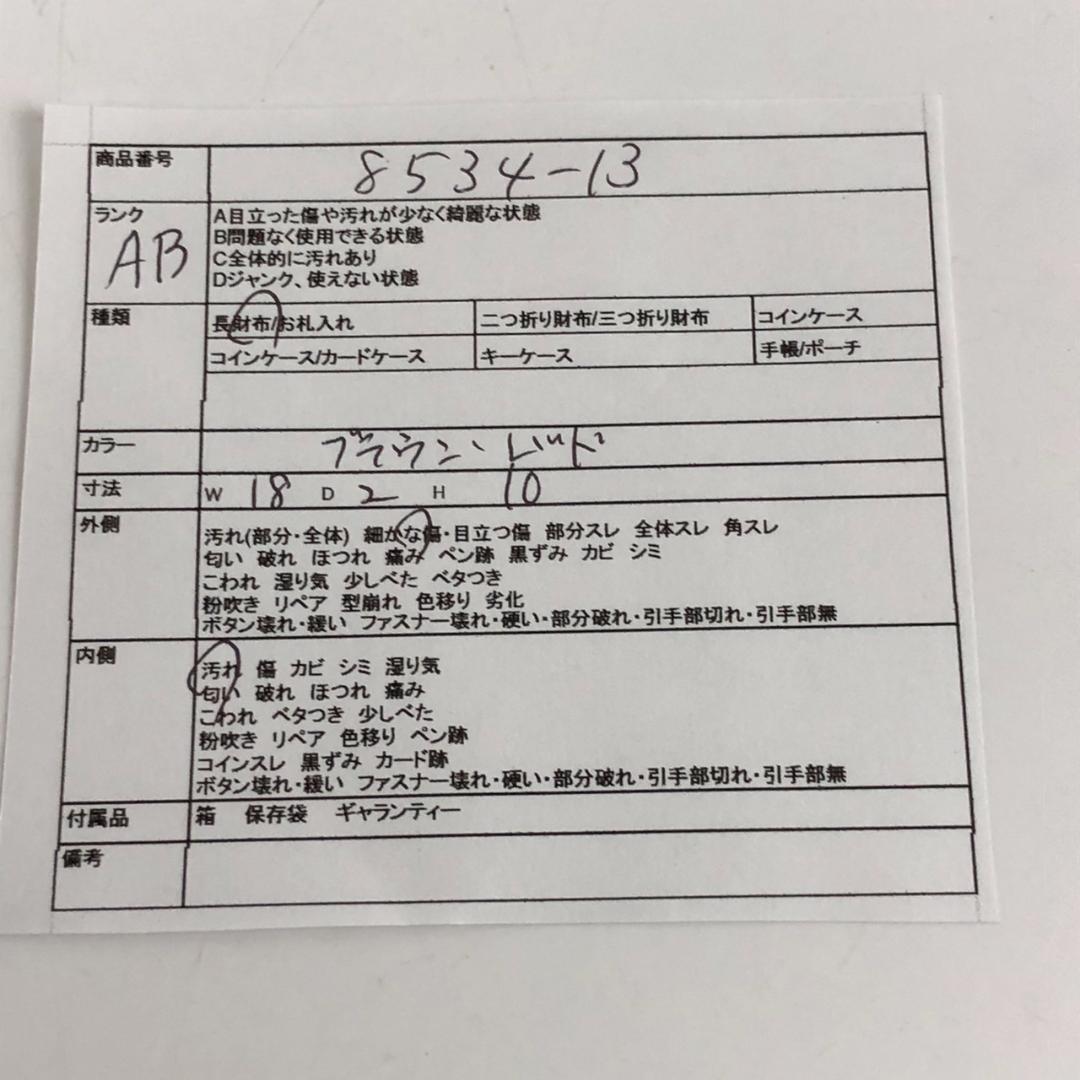 商品番号 8534-13
ランク AB
A目立った傷や汚れが少なく綺麗な状態
B問題なく使用できる状態
C全体的に汚れあり
Dジャンク、使えない状態
種類 長財布/お札入れ 二つ折り財布/三つ折り財布 コインケース
コインケース/カードケース キーケース 手帳/ポーチ
カラー ブラウン・レッド
寸法 W 18 D 2 H 10
外側 汚れ(部分・全体) 細かな傷・目立つ傷 部分スレ 全体スレ 角スレ
匂い 破れ ほつれ 痛み ペン跡 黒ずみ カビ シミ
こわれ 湿り気 少しべた ベタつき
粉吹き リペア 型崩れ 色移り 劣化
ボタン壊れ・緩い ファスナー壊れ・硬い・部分破れ・引手部切れ・引手部無
内側 汚れ 傷 カビ シミ 湿り気
匂い 破れ ほつれ 痛み
こわれ ベタつき 少しべた
粉吹き リペア 色移り ペン跡
コインスレ 黒ずみ カード跡
ボタン壊れ・緩い ファスナー壊れ・硬い・部分破れ・引手部切れ・引手部無
付属品 箱 保存袋 ギャランティー
備考